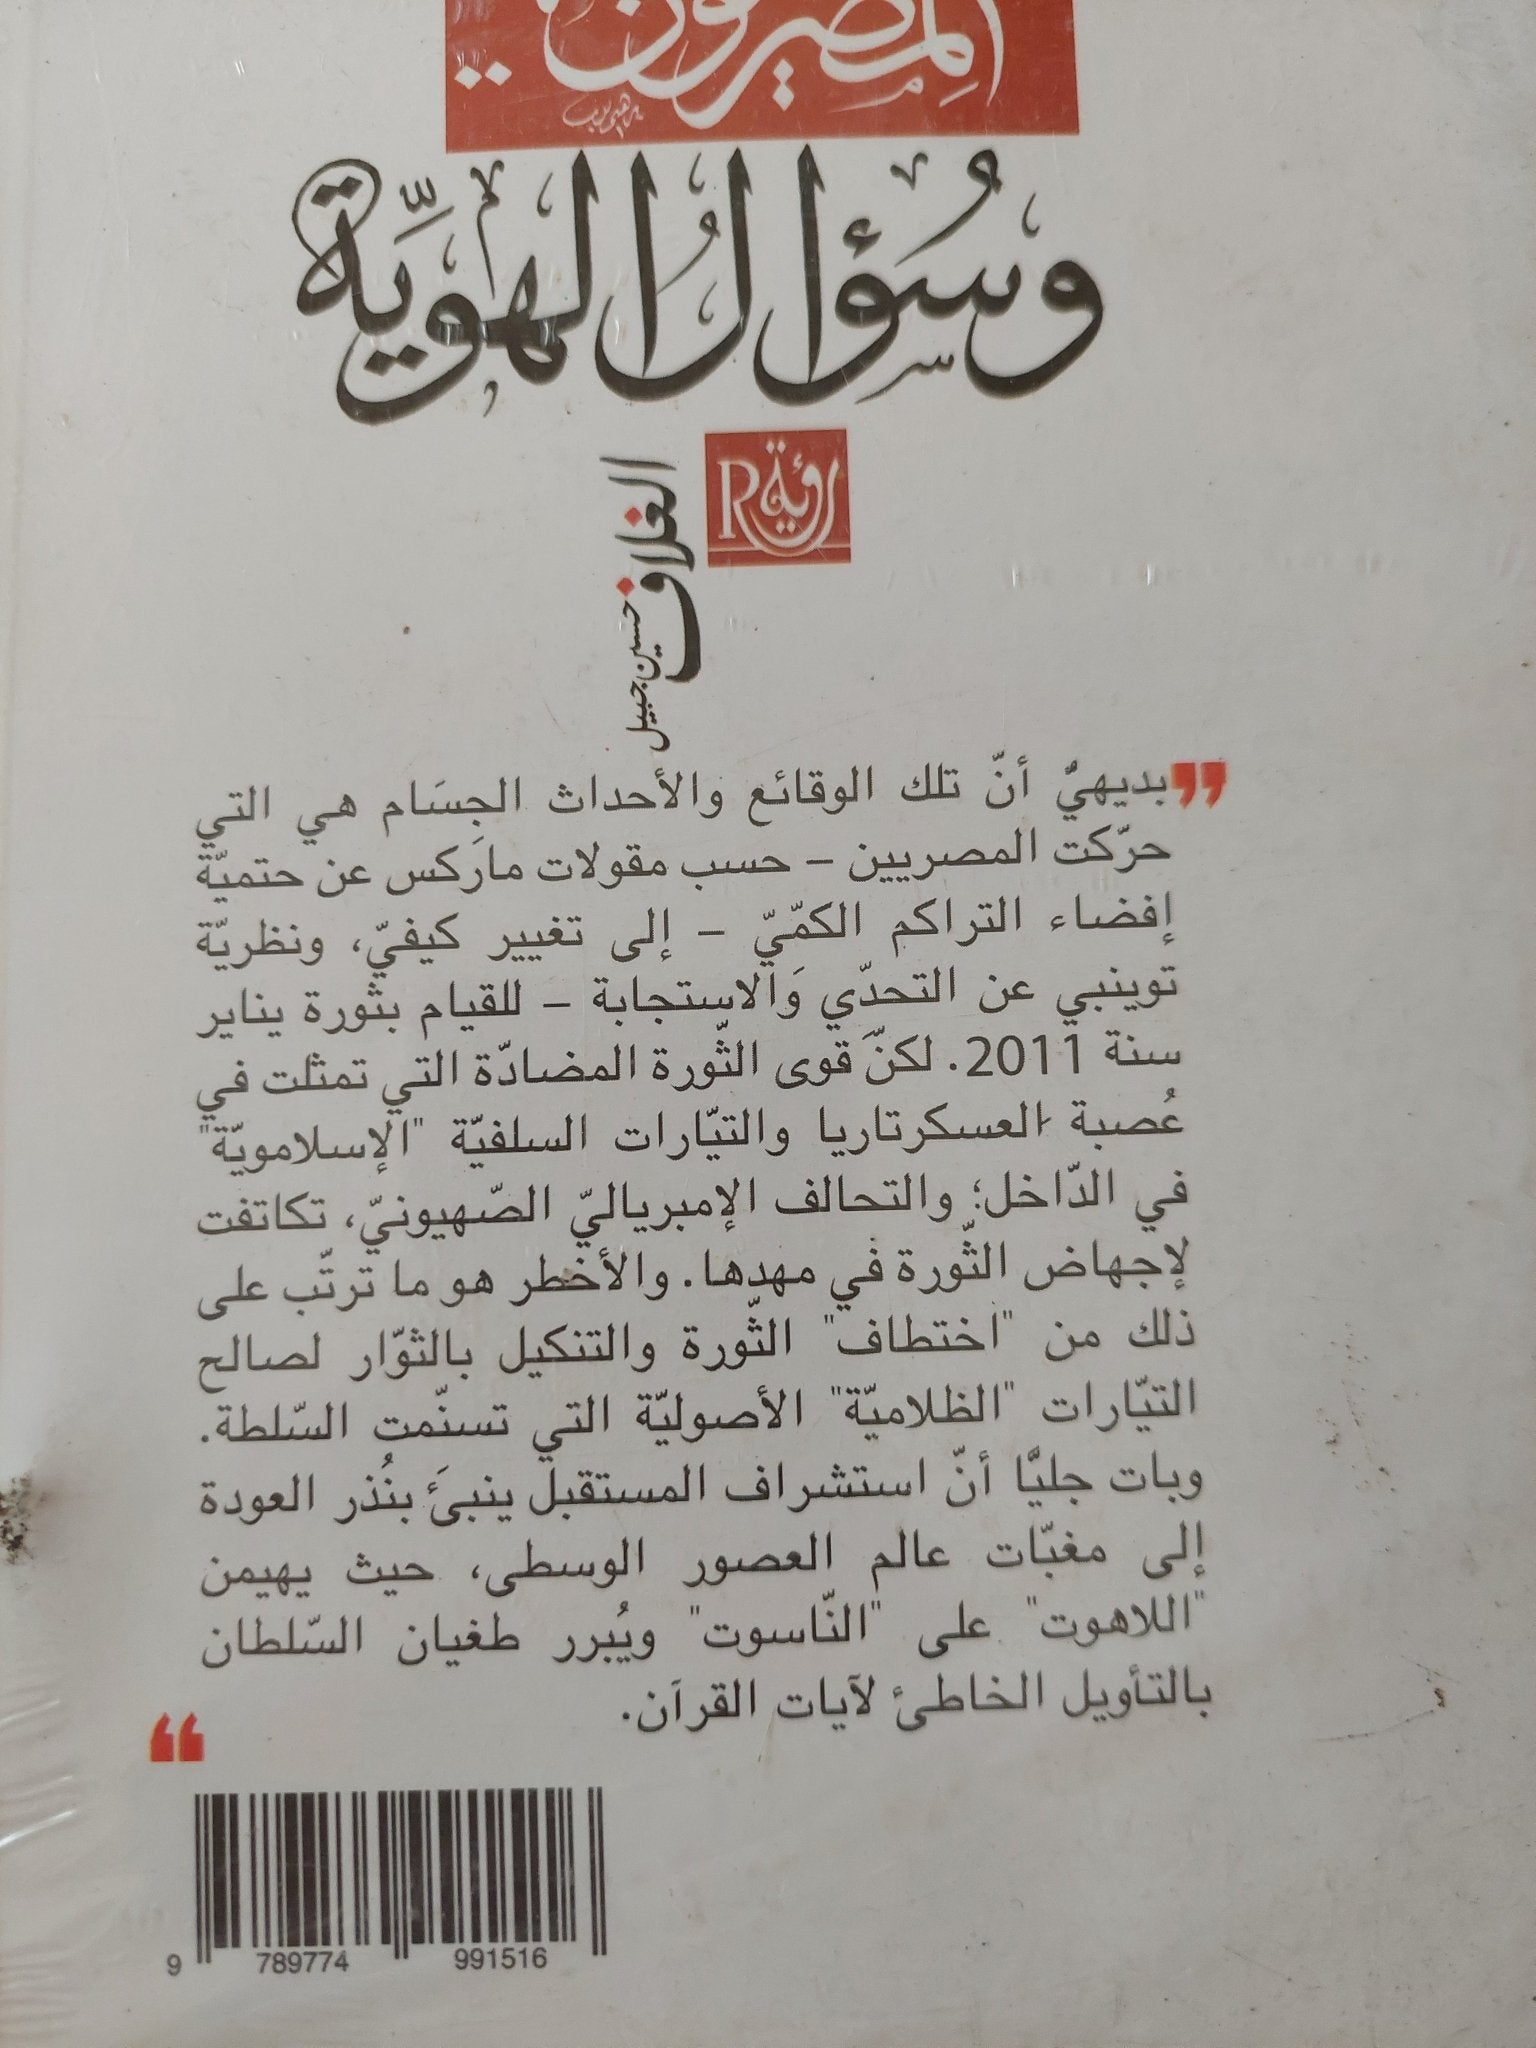 المصريون..
وسُؤال الهويّة
رؤية
R
الغلاف
حسين جبيل
"بديهيٌّ أنّ تلك الوقائع والأحداث الجِسَام هي التي
حرّكت المصريين – حسب مقولات ماركس عن حتميّة
إفضاء التراكم الكمّيّ – إلى تغيير كيفيّ، ونظريّة
توينبي عن التحدّي وَالاستجابة – للقيام بثورة يناير
سنة 2011. لكنّ قوى الثّورة المضادّة التي تمثلت في
عُصبة العسكرتاريا والتيّارات السلفيّة "الإسلامويّة"
في الدّاخل؛ والتحالف الإمبرياليّ الصّهيونيّ، تكاتفت
لإجهاض الثّورة في مهدها. والأخطر هو ما ترتّب على
ذلك من "اختطاف" الثّورة والتنكيل بالثوّار لصالح
التيّارات "الظلاميّة" الأصوليّة التي تسنّمت السّلطة.
وبات جليًّا أنّ استشراف المستقبل ينبئَ بنُذر العودة
إلى مغبّات عالم العصور الوسطى، حيث يهيمن
"اللاهوت" على "النّاسوت" ويُبرر طغيان السّلطان
بالتأويل الخاطئ لآيات القرآن."
9 789774 991516